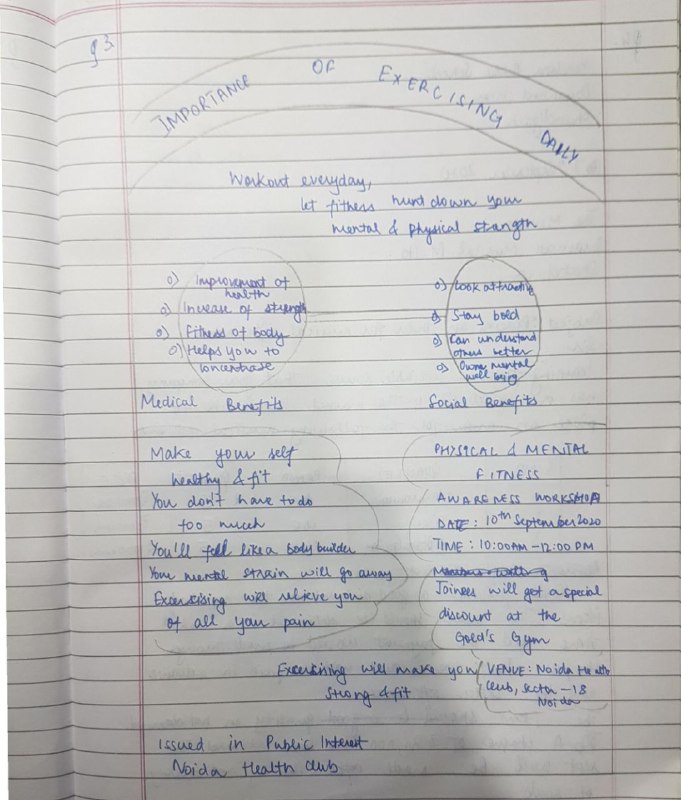 g 3.
IMPORTANCE OF EXERCISING DAILY
Workout everyday,
let fitness hunt down your
mental & physical strength
o) Improvement of
health
o) Increase of strength
o) Fitness of body
o) Helps you to
concentrate
Medical Benefits
o) Look attractive
o) Stay bold
o) Can understand
others better
o) Owne mental
well being
Social Benefits
Make your self
healthy & fit
You don't have to do
too much
You'll feel like a body builder
Your mental strain will go away
Excersising will relieve you
of all your pain
PHYSICAL & MENTAL
FITNESS
AWARENESS WORKSHOP
DATE : 10th September 2020
TIME : 10:00AM - 12:00 PM
Joinees will get a special
discount at the
Gold's Gym
VENUE : Noida Health
club, sector - 18
Noida
Excersising will make you
strong & fit
Issued in Public Interest
Noida Health Club